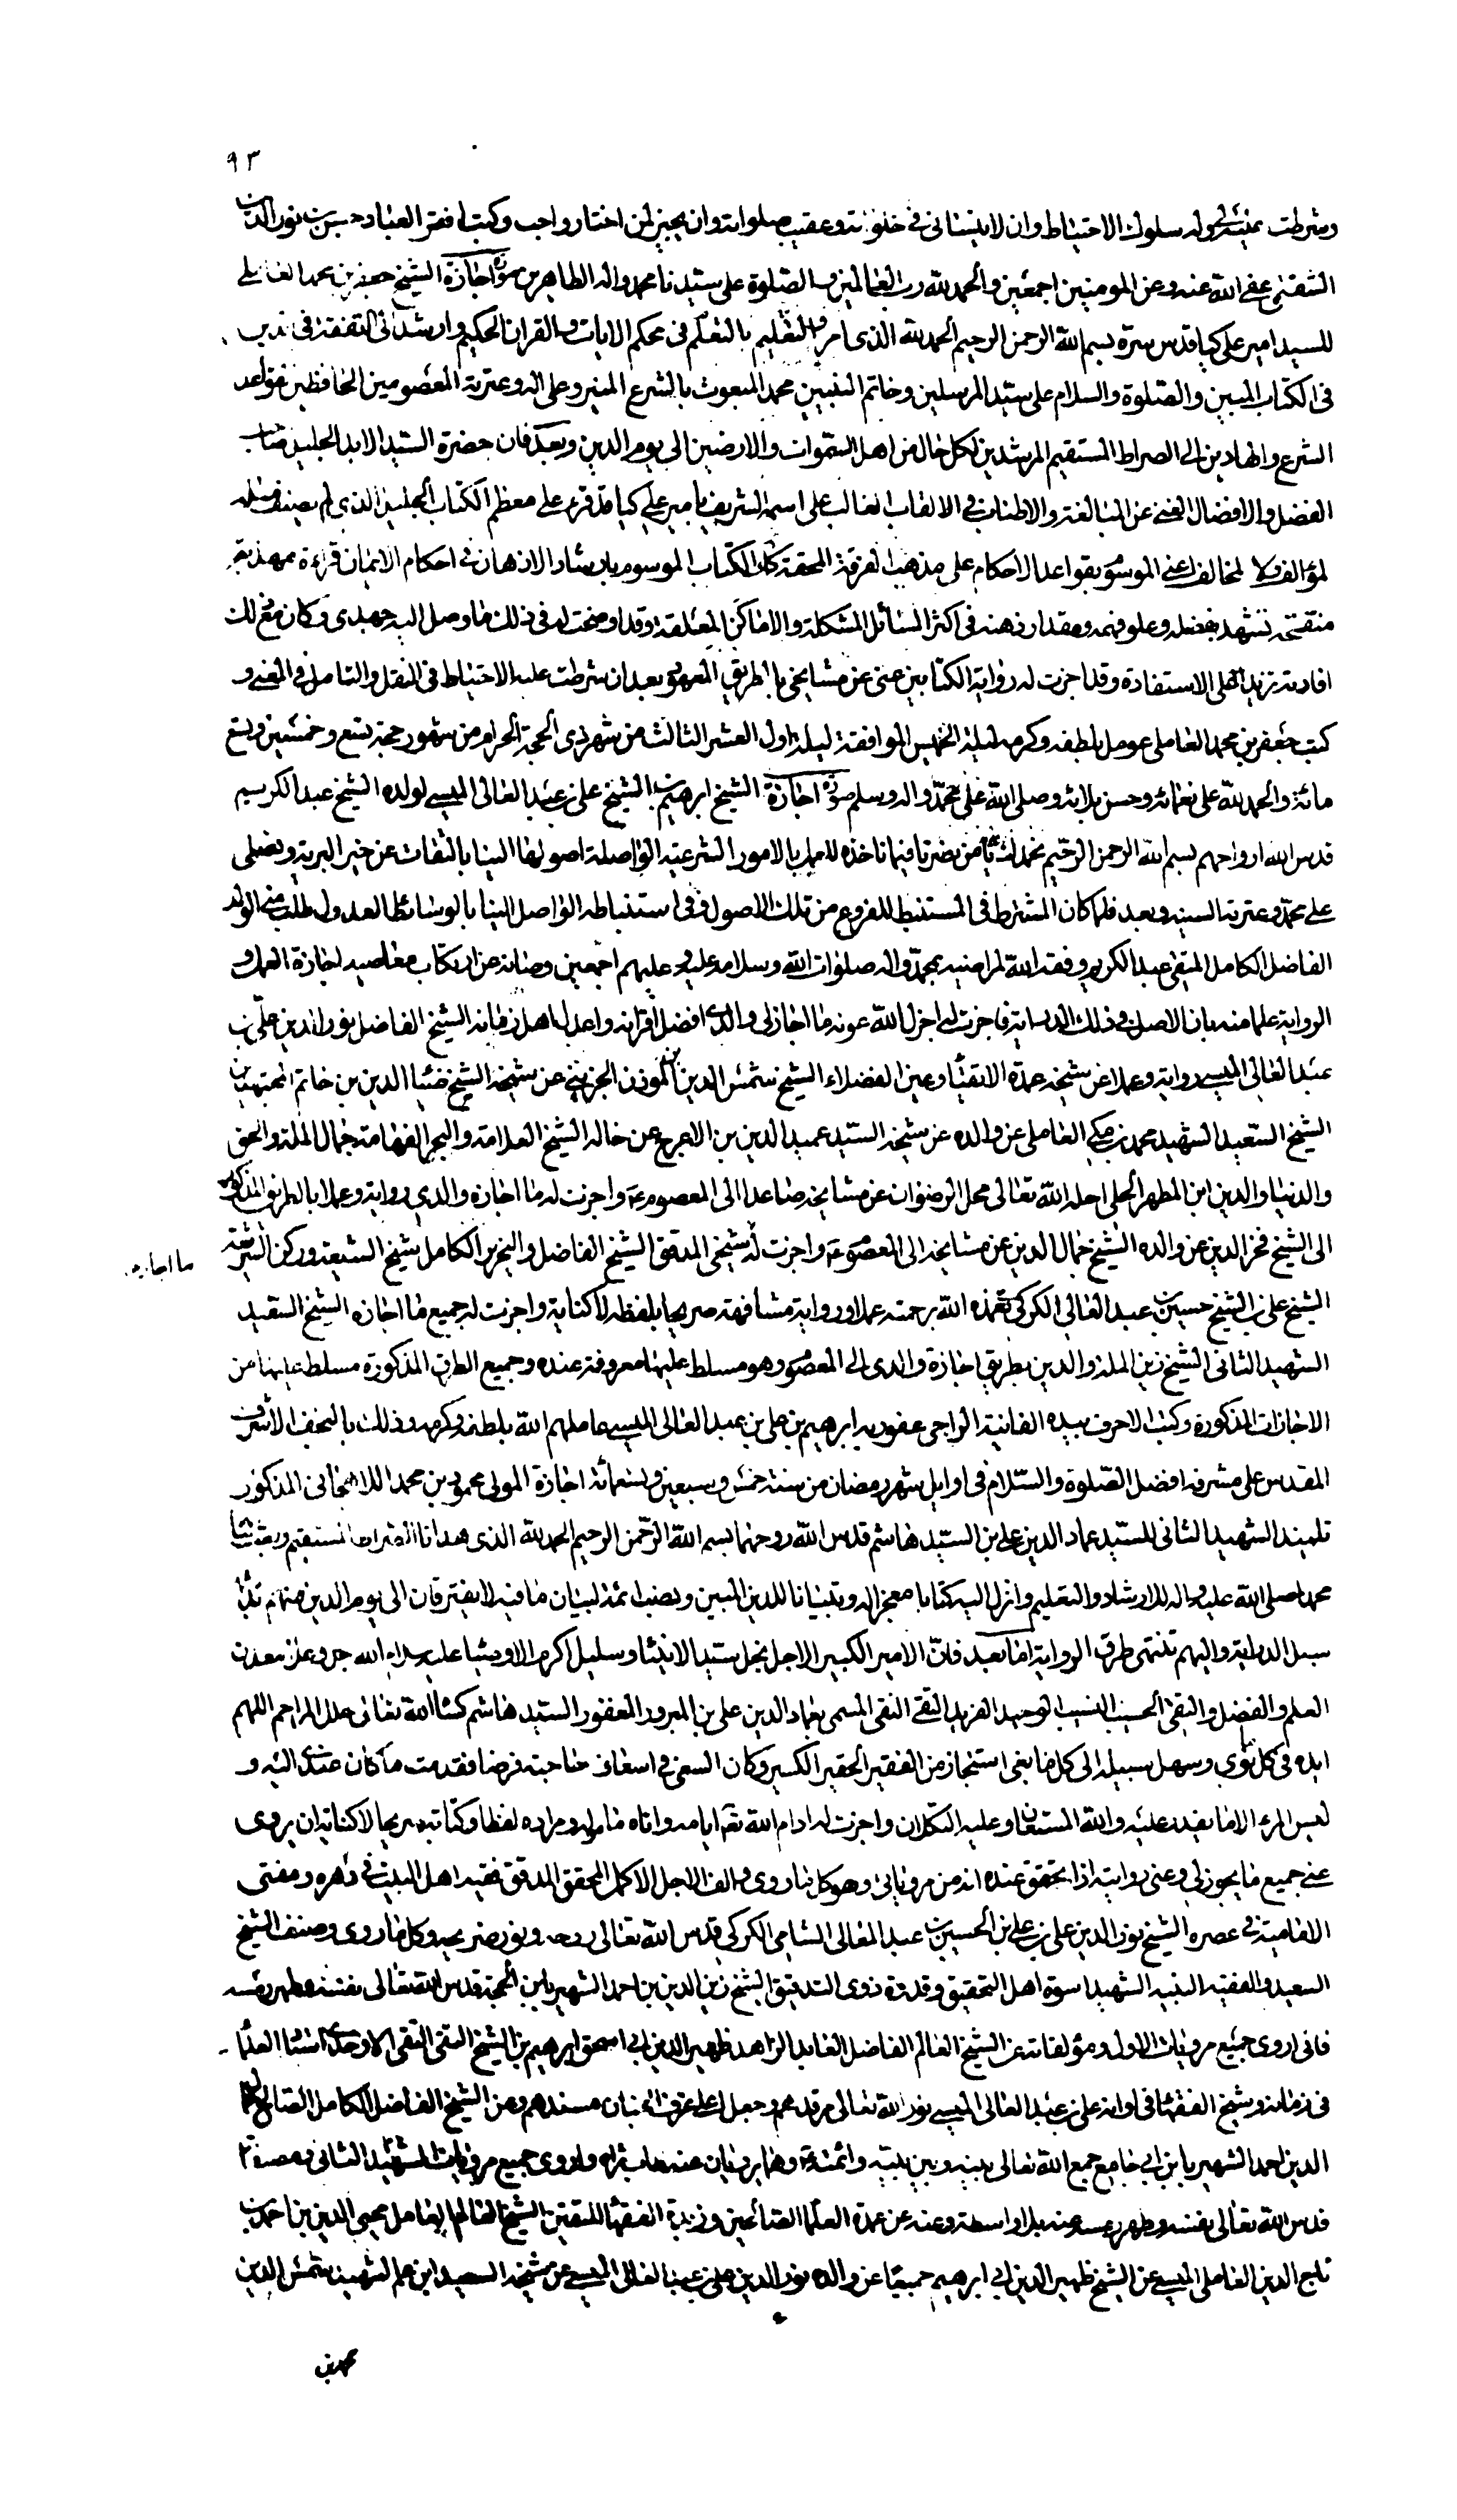 ٩٣
وشرطت عليه سلوك الاحتياط وان لا ينساني في خلواته وعقيب صلواته وان يجيز لمن اختار واحب وكتب افقر العباد حسين بن نور الدين
الشقتي عفى الله عنه وعن المومنين اجمعين والحمد لله رب العالمين والصلوة على سيدنا محمد واله الطاهرين صورة اجازة الشيخ جعفر بن محمد العاملي
للسيد امير علي كيا قدس سره بسم الله الرحمن الرحيم الحمد لله الذي امر بالتعليم بالتعلم في محكم الايات والقران الحكيم وارشد الى التفقه في
في الكتاب المبين والصلوة والسلام على سيد المرسلين وخاتم النبيين محمد المبعوث بالشرع المنير وعلى اله وعترته المعصومين الحافظين قواعد
الشرع والهادين الى الصراط المستقيم المرشدين لكل حال من اهل السموات والارضين الى يوم الدين وبعد فان حضرة السيد الايد الجليل
الفضل والافضال الغني عن المبالغة والاطناب في الالقاب الغالب على اسمه الشريف بامير علي كيا قد قرء على معظم الكتاب الجليل الذي لم يصنف مثله
لمؤالف ولا لمخالف اعني الموسوم بقواعد الاحكام على مذهب الفرقة المحقة كل الكتاب الموسوم بارشاد الاذهان في احكام الايمان قراءة مهذبة
منقحة تشهد بفضله وعلو فهمه ومقدار ذهنه في اكثر المسائل المشكلة والاماكن المغلقة وقد اوضحت له في ذلك ما وصل اليه جهدي وكان مع ذلك
افادته تزيد على الاستفادة وقد اجزت له رواية الكتابين عني عن مشايخي بالطريق المعهود بعد ان شرطت عليه الاحتياط في النقل والتامل في المعنى و
كتب جعفر بن محمد العاملي عومل بلطفه وكرمه ليلة الخميس الموافقة ليلة اول العشر الثالث من شهر ذي الحجة الحرام من شهور حجة تسع وخمسين وتسع
مائة والحمد لله على نعمائه وحسن بلائه وصلى الله على محمد واله وسلم صورة اجازة الشيخ ابرهيم بن الشيخ علي بن عبد العالي الميسي لولده الشيخ عبد الكريم
قدس الله ارواحهم بسم الله الرحمن الرحيم نحمدك يا من بصرنا فيما ناخذه للعمل بالامور الشرعية الواصلة اصولها الينا بالثقات عن خير البرية ونصلي
على محمد وعترته السنيه وبعد فلما كان المشترط في المستنبط للفروع من تلك الاصول وفي استنباطه الواصل الينا بالوسائط العدول طلب مني الولد
الفاضل الكامل المتقي عبد الكريم وفقه الله لمراضيه بمحمد واله صلوات الله وسلامه عليه وعليهم اجمعين وصانه عن ارتكاب معاصيه اجازة العمل و
الرواية علما منه بان الاصل في ذلك الدراية فاجزت له اجزل الله عونه ما اجاز لي والدي افضل اقرانه واعدل اهل زمانه الشيخ الفاضل نور الدين علي بن
عبد العالي الميسي رواية وعملا عن شيخه عمدة الاتقيا وعين الفضلاء الشيخ شمس الدين بن الموذن الجزيني عن شيخه الشيخ ضيا الدين بن خاتم المجتهدين
الشيخ السعيد الشهيد محمد بن مكي العاملي عن والده عن شيخه السيد عميد الدين بن الاعرج عن خاله الشيخ العلامة والبحر الفهامة جمال الملة والحق
والدنيا والدين ابن المطهر الحلي احله الله تعالى محل الرضوان عن مشايخه صاعدا الى المعصوم ع واجزت له ما اجازه والدي رواية وعملا بالطريق المذكور
الى الشيخ فخر الدين عن والده الشيخ جمال الدين عن مشايخه الى المعصوم ع واجزت له شيخي المدقق الشيخ الفاضل والنحرير الكامل شيخ الشيعة وركن الشريعة
ما اجازه
الشيخ علي بن الشيخ حسين بن عبد العالي الكركي تغمده الله برحمته عملا ورواية مشافهة صريحا بلفظه لا كناية واجزت له جميع ما اجازه الشيخ السعيد
الشهيد الثاني الشيخ زين الملة والدين بطريق اجازة والدي الى المعصوم وهو مسلط عليها معروفة عنده وجميع الطرق المذكورة مسلط عليها من
الاجازات المذكورة وكتب الاحرف بيده الفانية الراجي عفو ربه ابرهيم بن علي بن عبد العالي الميسي عاملهم الله بلطفه وكرمه وذلك بالنجف الاشرف
المقدس على مشرفه افضل الصلوة والسلام في اوايل شهر رمضان من سنة خمس وسبعين وتسعمائة اجازة المولى محمود بن محمد اللاهجاني المذكور
تلميذ الشهيد الثاني للسيد عماد الدين علي بن السيد هاشم قدس الله روحهما بسم الله الرحمن الرحيم الحمد لله الذي هدانا الصراط المستقيم وبعث نبيا
محمدا صلى الله عليه واله للارشاد والتعليم وانزل اليه كتابا معجزا له وتبيانا للدين المبين ونصب ائمة لبيان ما فيه لا يفترقان الى يوم الدين منهم
سبل الدراية واليهم تنتهي طرق الرواية اما بعد فان الامير الكبير الاجل نجل سيد الانبيا وسليل اكرم الاوصيا عليه سلام الله جل وعلا معدن
العلم والفضل والتقى الحسيب النسيب الوحيد الفريد التقي النقي المسمى بعماد الدين علي بن المبرور المغفور السيد هاشم كساه الله تعالى حلل المراحم اللهم
ايده في كل ما نوي وسهل سبيله الى كل ما بغى استجاز من الفقير الحقير الكسير وكان السعي في اسعاف حاجته فرضا فقدمت ما كان عندي اليه و
ليس للمرء الا ما يقدر عليه والله المستعان وعليه التكلان واجزت له ادام الله تع ايامه واتاه مأموله ومراده لفظا وكتابة صريحا لا كناية ان يروي
عني جميع ما يجوز لي وعني روايته اذا تحقق عنده انه من مروياتي وهو كل ما روى والف الاجل الاكمل المحقق المدقق فقيه اهل البيت في دهره ومفتي
الامامية في عصره الشيخ نور الدين علي بن علي بن الحسين بن عبد العالي الشامي الكركي قدس الله تعالى روحه ونور ضريحه وكل ما روى وصنف الشيخ
السعيد والفقيه النبيه الشهيد اسوة اهل التحقيق وقدوة ذوي التدقيق الشيخ زين الدين بن احمد الشهير بابن الحجة قدس الله تعالى نفسه وطهر رمسه
فاني اروي جميع مرويات الاول ومؤلفاته عن الشيخ العالم الفاضل العابد الزاهد ظهير الدين ابي اسحق ابرهيم بن الشيخ التقي النقي الاوحدي استاد العلما
في زمانه وشيخ الفقها في اوانه علي بن عبد العالي الميسي نور الله تعالى مرقدهم وجعل اعلى غرف الجنان مسندهم وعن الشيخ الفاضل الكامل الصالح جمال
الدين احمد الشهير بابن ابي جامع جمع الله تعالى بينه وبين نبيه وائمته ع وهما يرويان عنه طاب ثراه واروي جميع مرويات الشهيد الثاني ومصنفاته
قدس الله تعالى نفسه وطهر رمسه عنه بلا واسطة وعنه عن عمدة العلما الصالحين وزبدة الفقها المتقين الشيخ العالم العامل محيي الدين بن احمد بن
تاج الدين العاملي الميسي عن الشيخ ظهير الدين ابي ابرهيم جميعا عن والده نور الدين علي بن عبد العالي الميسي عن شيخه السعيد ابن عم الشهيد شمس الدين
محمد بن